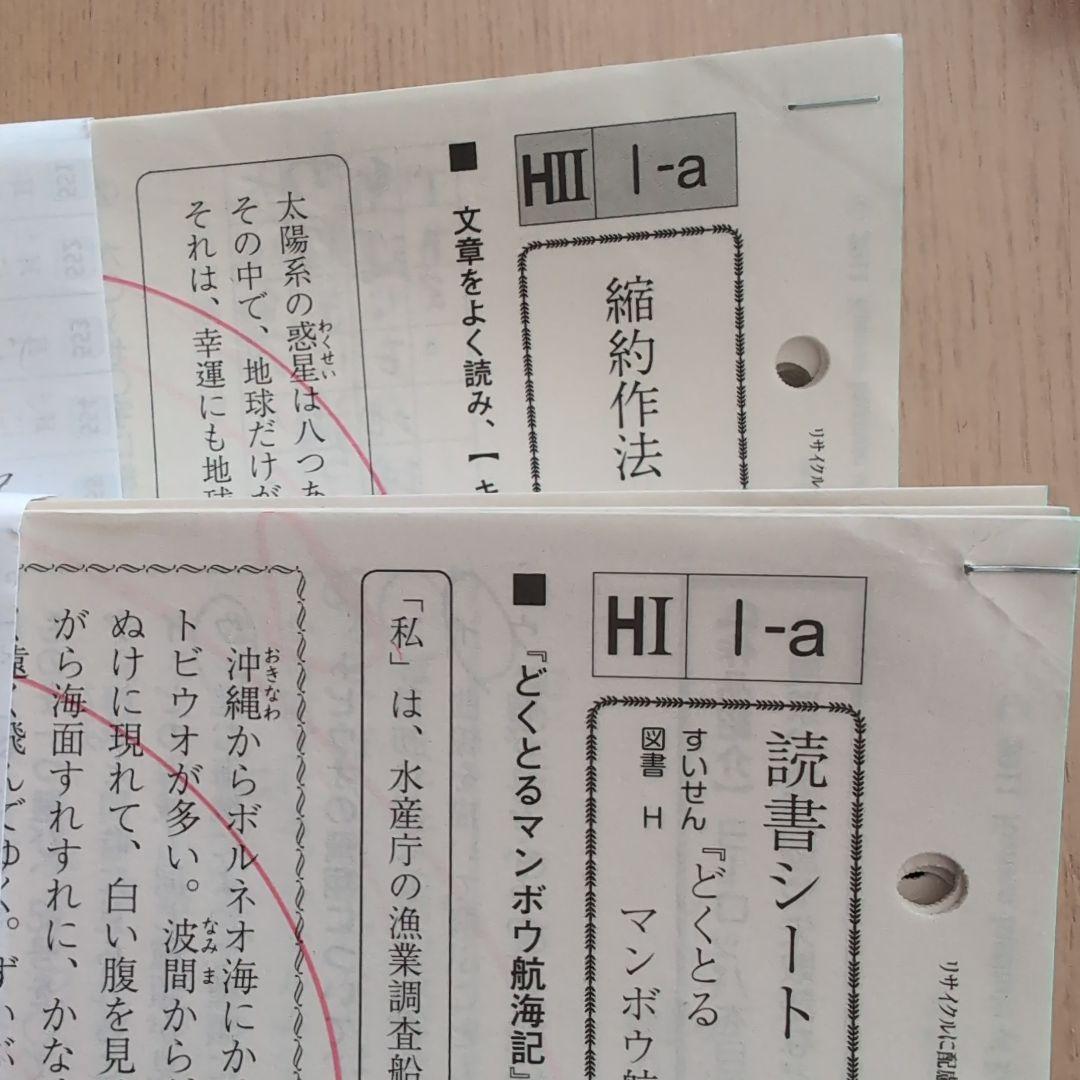 HⅡ 1-a
縮約作法
■ 文章をよく読み、【キ
太陽系の惑星は八つあ
わくせい
その中で、地球だけが
それは、幸運にも地球
リサイクル
HⅠ 1-a
読書シート
すいせん
図書 H
『どくとる
マンボウ航
■『どくとるマンボウ航海記』
「私」は、水産庁の漁業調査船
沖縄からボルネオ海にか
おきなわ
トビウオが多い。波間から
なみま
ぬけに現れて、白い腹を見
がら海面すれすれに、かな
遠く飛んでゆく。ずいぶ
リサイクルに配慮